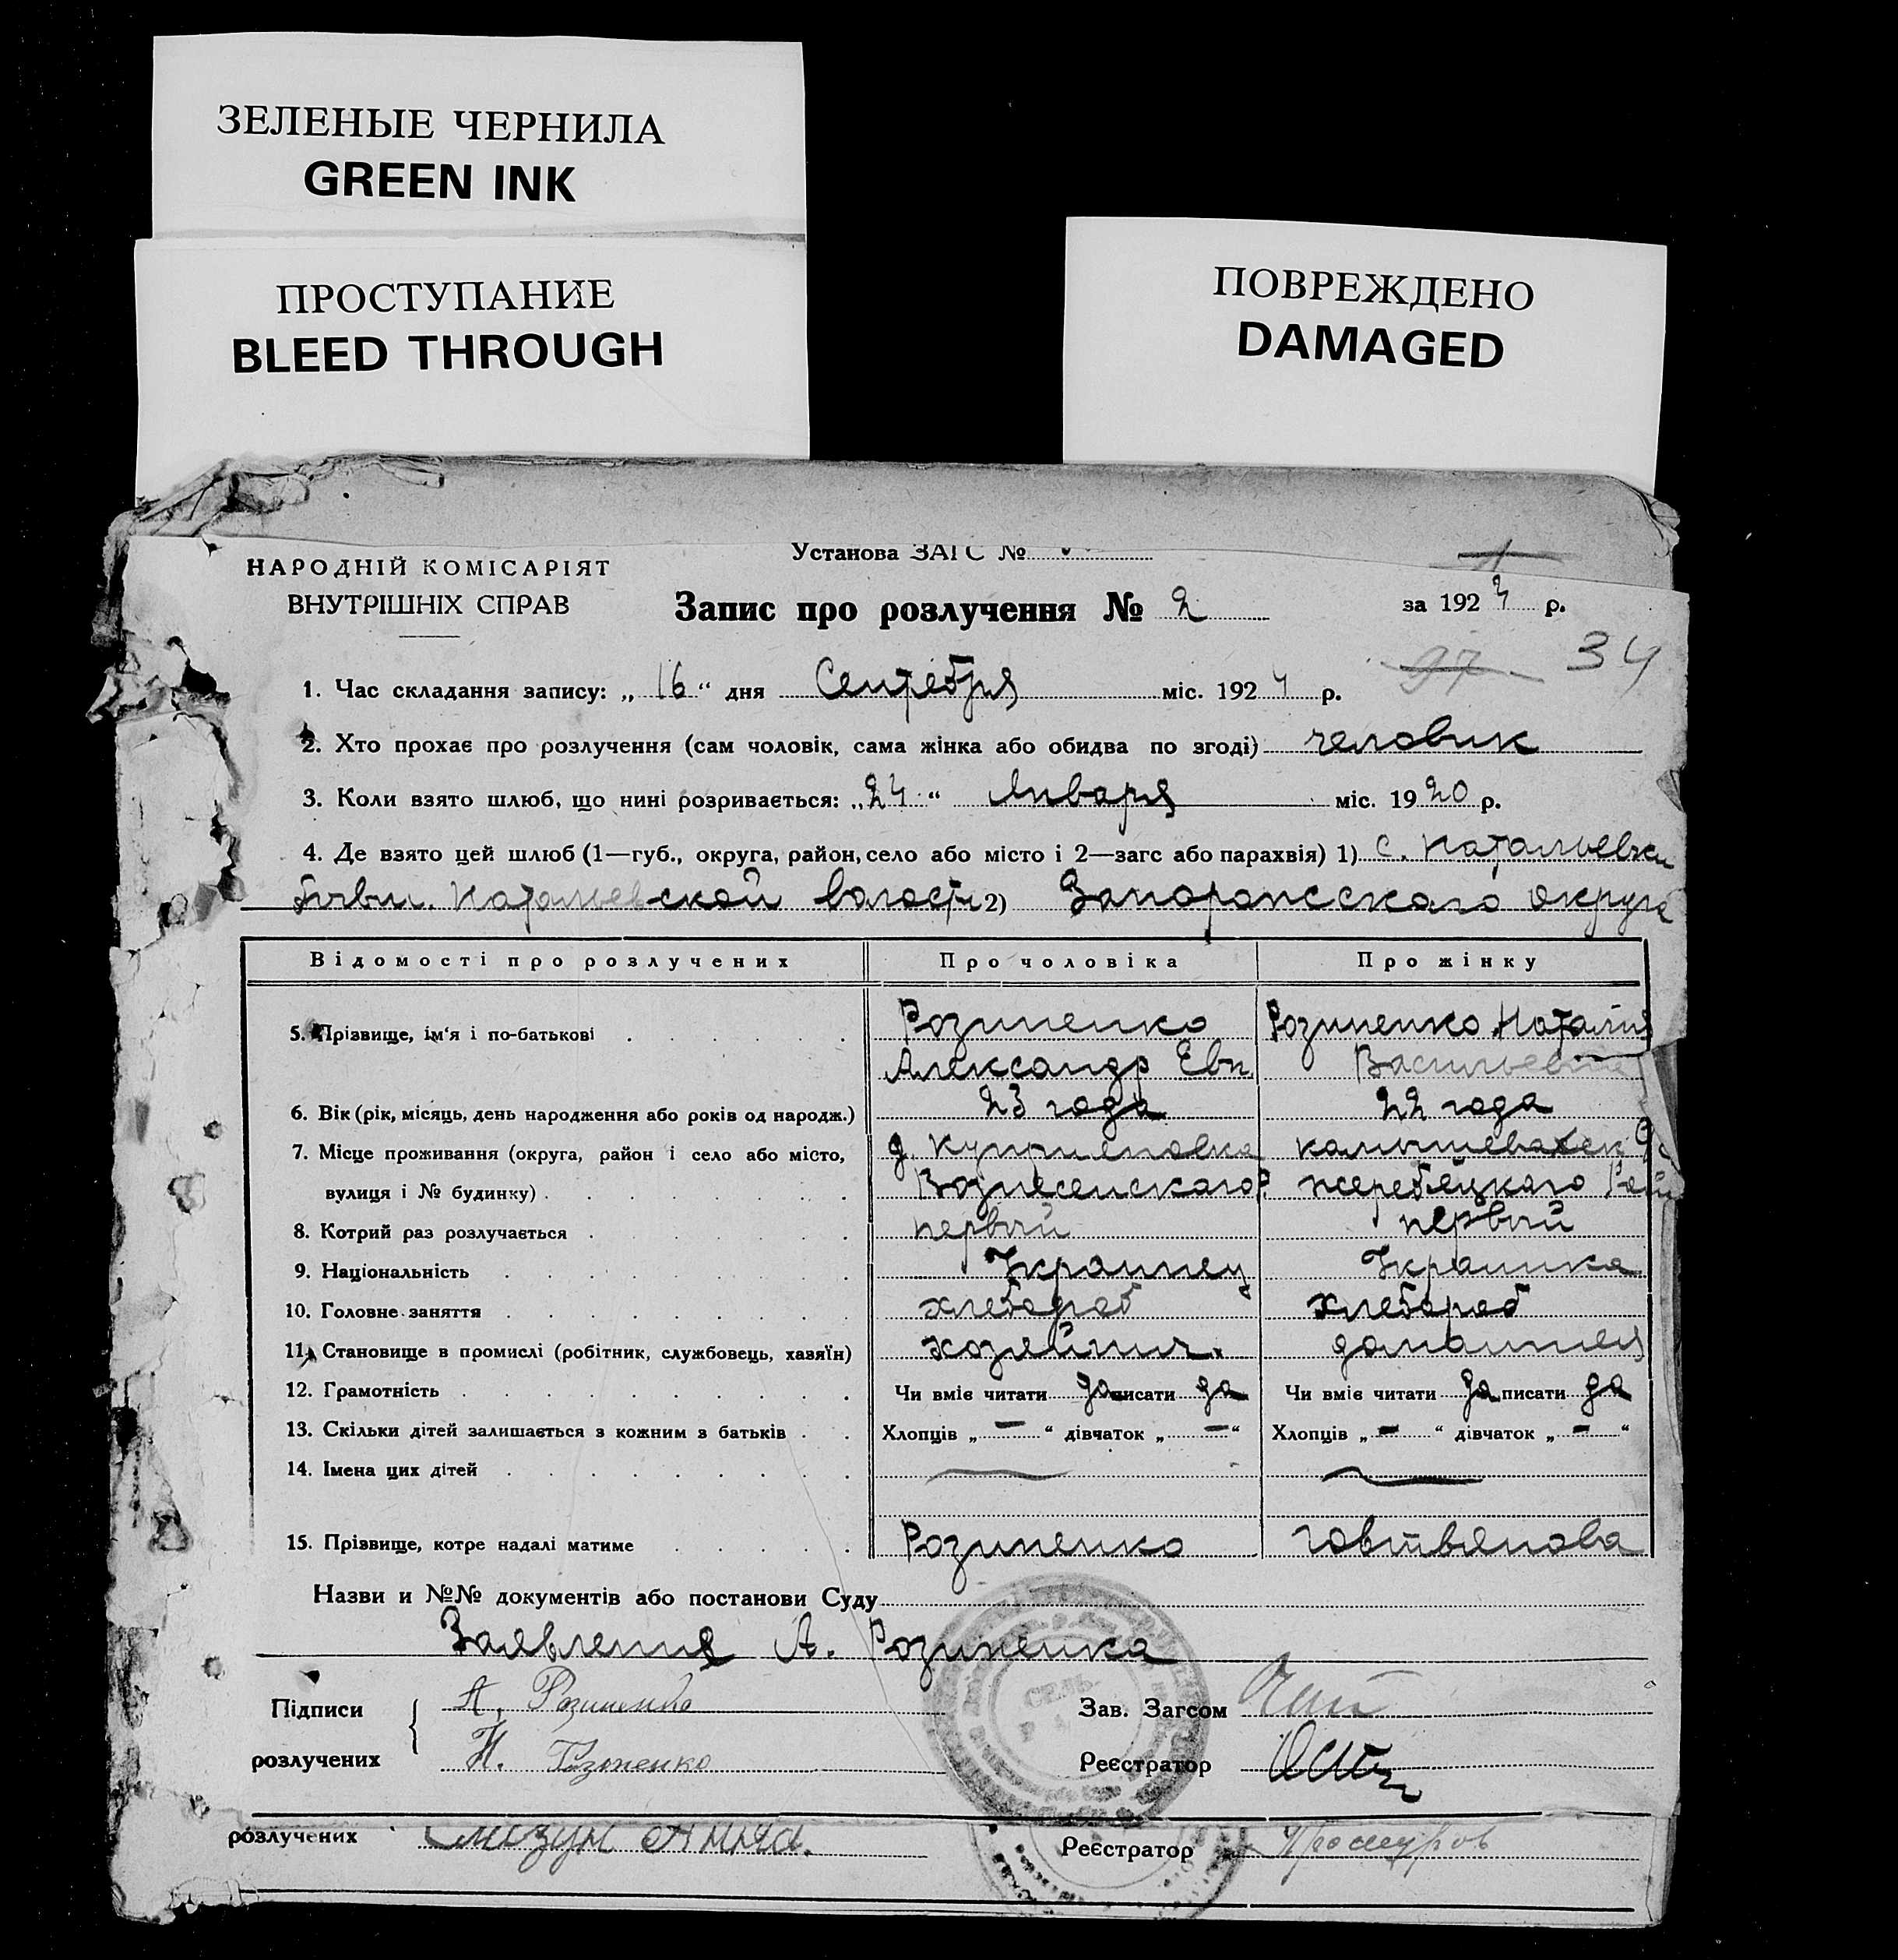 ЗЕЛЕНЫЕ ЧЕРНИЛА
GREEN INK
ПРОСТУПАНИЕ
BLEED THROUGH
ПОВРЕЖДЕНО
DAMAGED
Установа ЗАГС №
НАРОДНІЙ КОМІСАРІЯТ
ВНУТРІШНІХ СПРАВ
Запис про розлучення № 2
за 1924 р.
97 34
1. Час складання запису: „16“ дня Сентебря міс. 1924 р.
2. Хто прохає про розлучення (сам чоловік, сама жінка або обидва по згоді) человик
3. Коли взято шлюб, що нині розривається: „24“ Января міс. 1920 р.
4. Де взято цей шлюб (1—губ., округа, район, село або місто і 2—загс або парахвія) 1) с. Натальевки
бывш. Натальевской волости 2) Запорожсского округа
Відомості про розлучених Про чоловіка Про жінку
5. Прізвище, ім'я і по-батькові Розиненко Розиненко Наталия
Александр Евп. Васильевна
6. Вік (рік, місяць, день народження або років од народж.) 23 года 22 года
7. Місце проживання (округа, район і село або місто, д. Куприяновка
вулиця і № будинку) Вознесенскаго Р. жеребецкаго
8. Котрий раз розлучається первый первый
9. Національність Украинец Украинка
10. Головне заняття хлебораб хлебораб
11. Становище в промислі (робітник, службовець, хазяїн) хозяйнич.
12. Грамотність Чи вміє читати да писати да Чи вміє читати да писати да
13. Скільки дітей залишається з кожним з батьків Хлопців „ — “ дівчаток „ — “ Хлопців „ — “ дівчаток „ — “
14. Імена цих дітей
15. Прізвище, котре надалі матиме Розиненко Говтвянова
Назви и №№ документів або постанови Суду
Заявления А. Розиненка
Підписи А. Розиненко Зав. Загсом
розлучених Н. Розиненко Реєстратор
розлучених Мізун Анна. Реєстратор